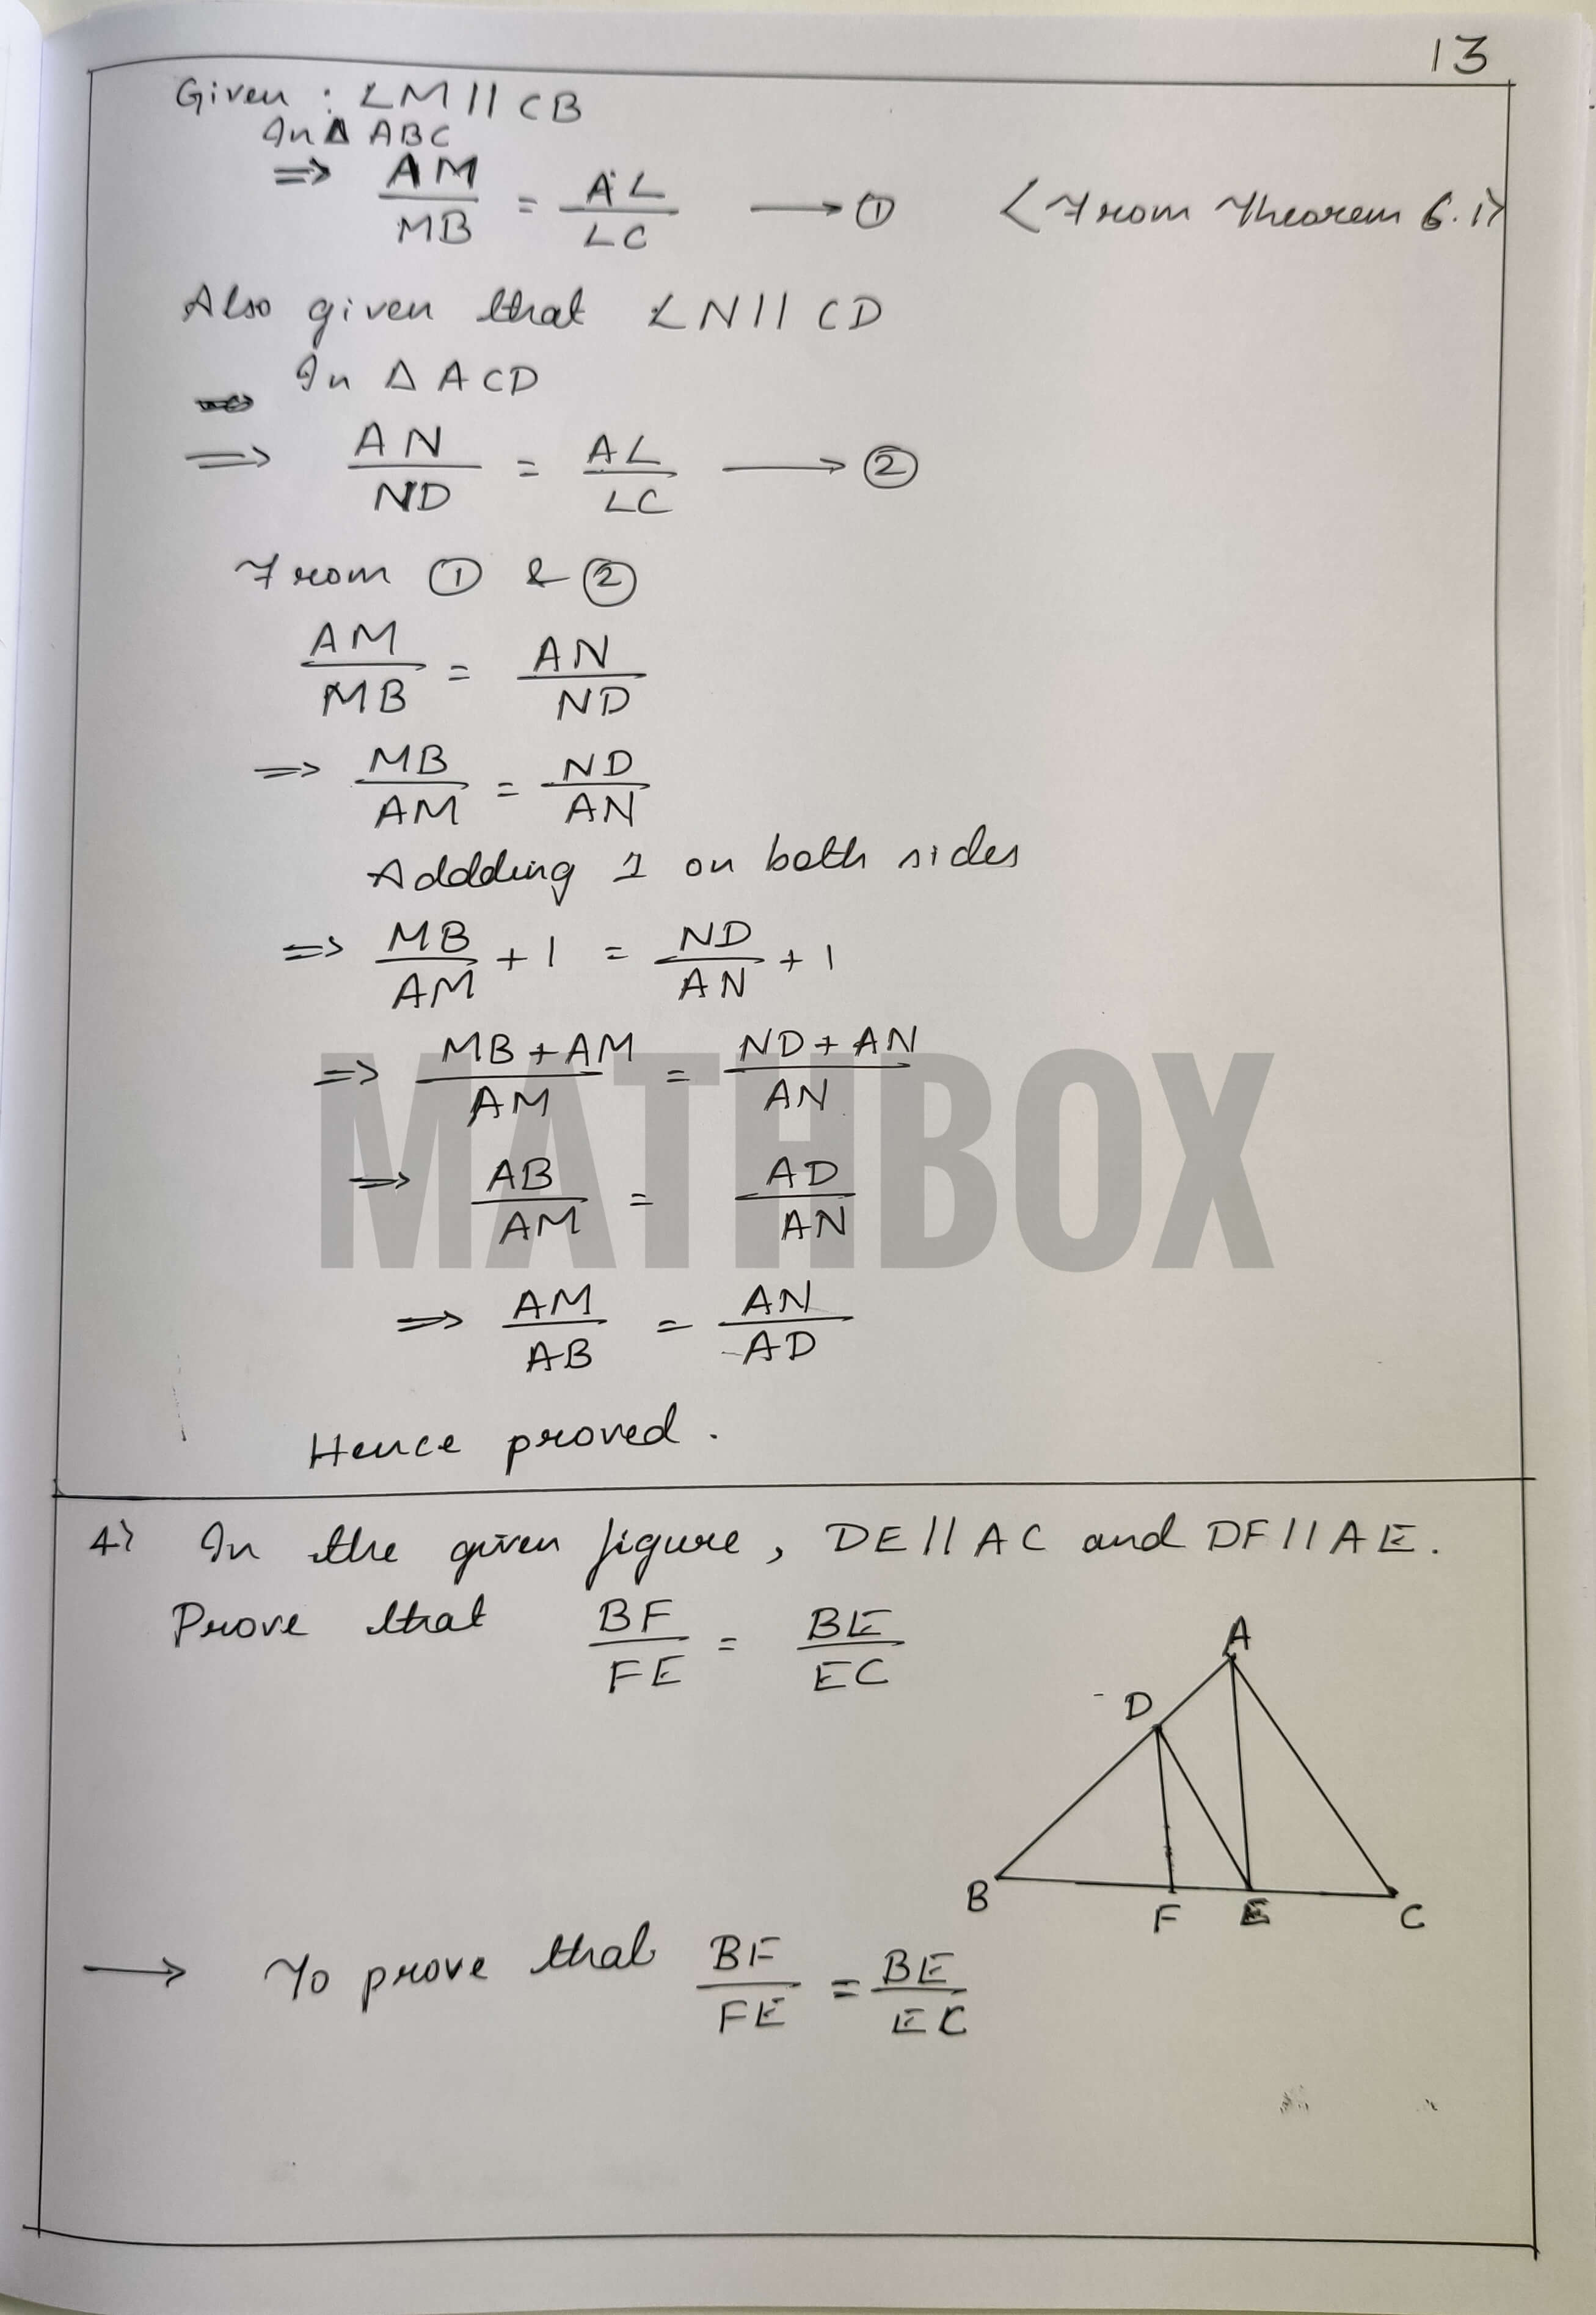 13
Given : LM || CB
In Δ ABC
⇒ AM/MB = AL/LC ⟶ ① <From Theorem 6.1>
Also given that LN || CD
In Δ ACD
⇒ AN/ND = AL/LC ⟶ ②
From ① & ②
AM/MB = AN/ND
⇒ MB/AM = ND/AN
Addding 1 on both sides
⇒ MB/AM + 1 = ND/AN + 1
⇒ MB + AM/AM = ND + AN/AN
MATHBOX
⇒ AB/AM = AD/AN
⇒ AM/AB = AN/AD
Hence proved.
4> In the given figure, DE || AC and DF || AE.
Prove that BF/FE = BE/EC
A
D
B
F E C
⟶ To prove that BF/FE = BE/EC